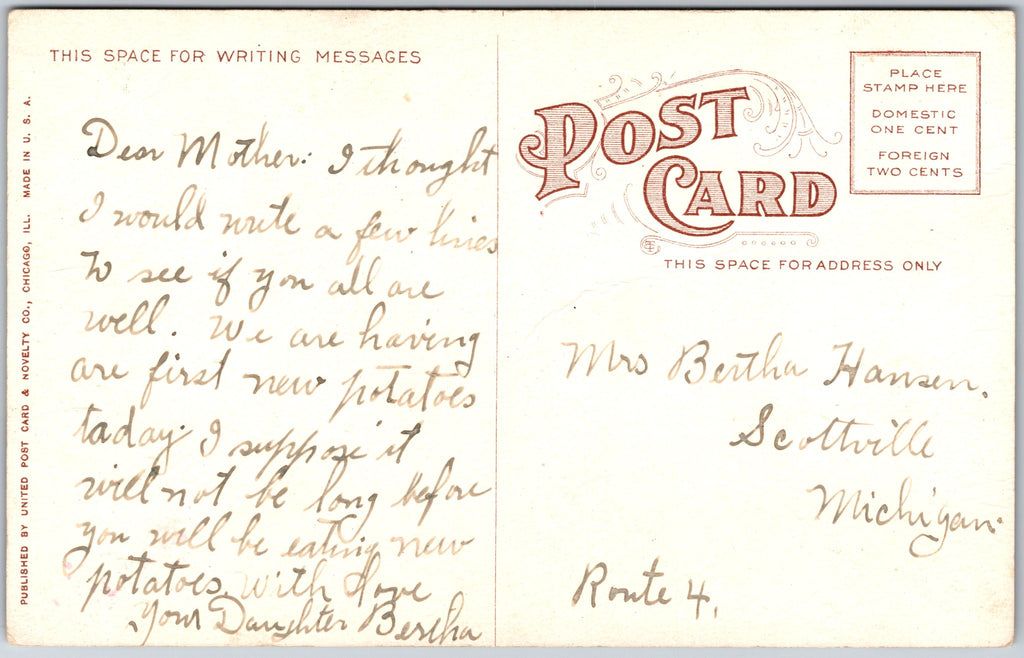 THIS SPACE FOR WRITING MESSAGES
Dear Mother: I thought
I would write a few lines
to see if you all are
well. We are having
are first new potatoes
taday. I suppose it
will not be long before
you will be eating new
potatoes. With Love
Your Daughter Bertha
PUBLISHED BY UNITED POST CARD & NOVELTY CO., CHICAGO, ILL. MADE IN U. S. A.
POST
CARD
PLACE
STAMP HERE
DOMESTIC
ONE CENT
FOREIGN
TWO CENTS
THIS SPACE FOR ADDRESS ONLY
Mrs Bertha Hansen.
Scottville
Michigan.
Route 4.